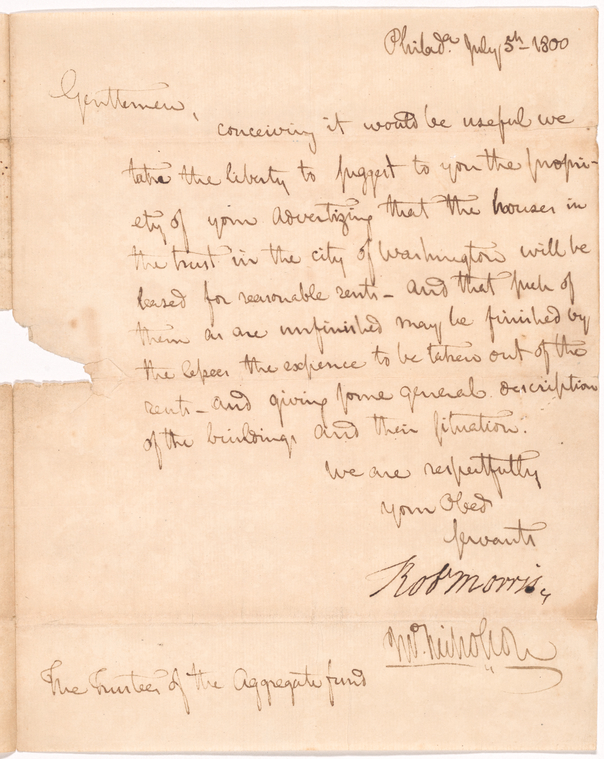 Philada. July 5th 1800
Gentlemen,
conceiving it would be useful we
take the liberty to suggest to you the propri-
ety of your advertizing that the houses in
the trust in the city of Washington will be
leased for reasonable rents - and that such of
them as are unfinished may be finished by
the lessees the expence to be taken out of the
rents - and giving some general description
of the buildings and their situation.
We are respectfully
your Obed
servants
Robt Morris
Jno. Nicholson
The Trustees of the Aggregate fund